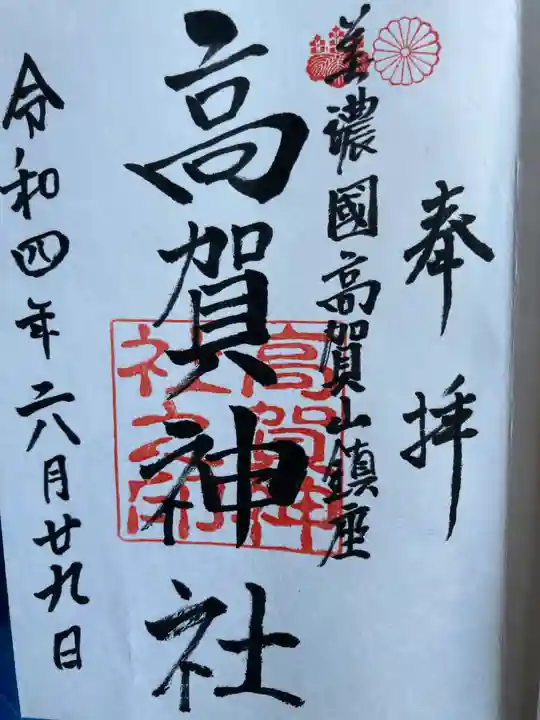 奉拝
美濃國高賀山鎮座
高賀神社
高賀神社之印
令和四年六月廿九日